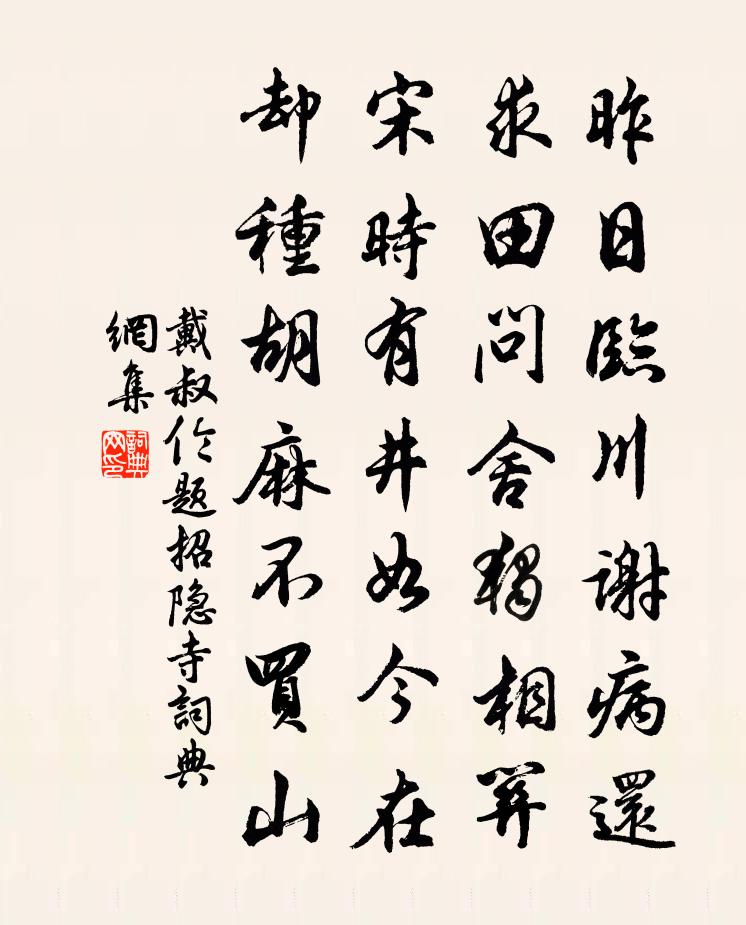 昨日臨川謝病還
求田問舍獨相關
宋時有井如今在
却種胡麻不買山
戴叔伦題招隐寺詞典
網集
詞典
网印